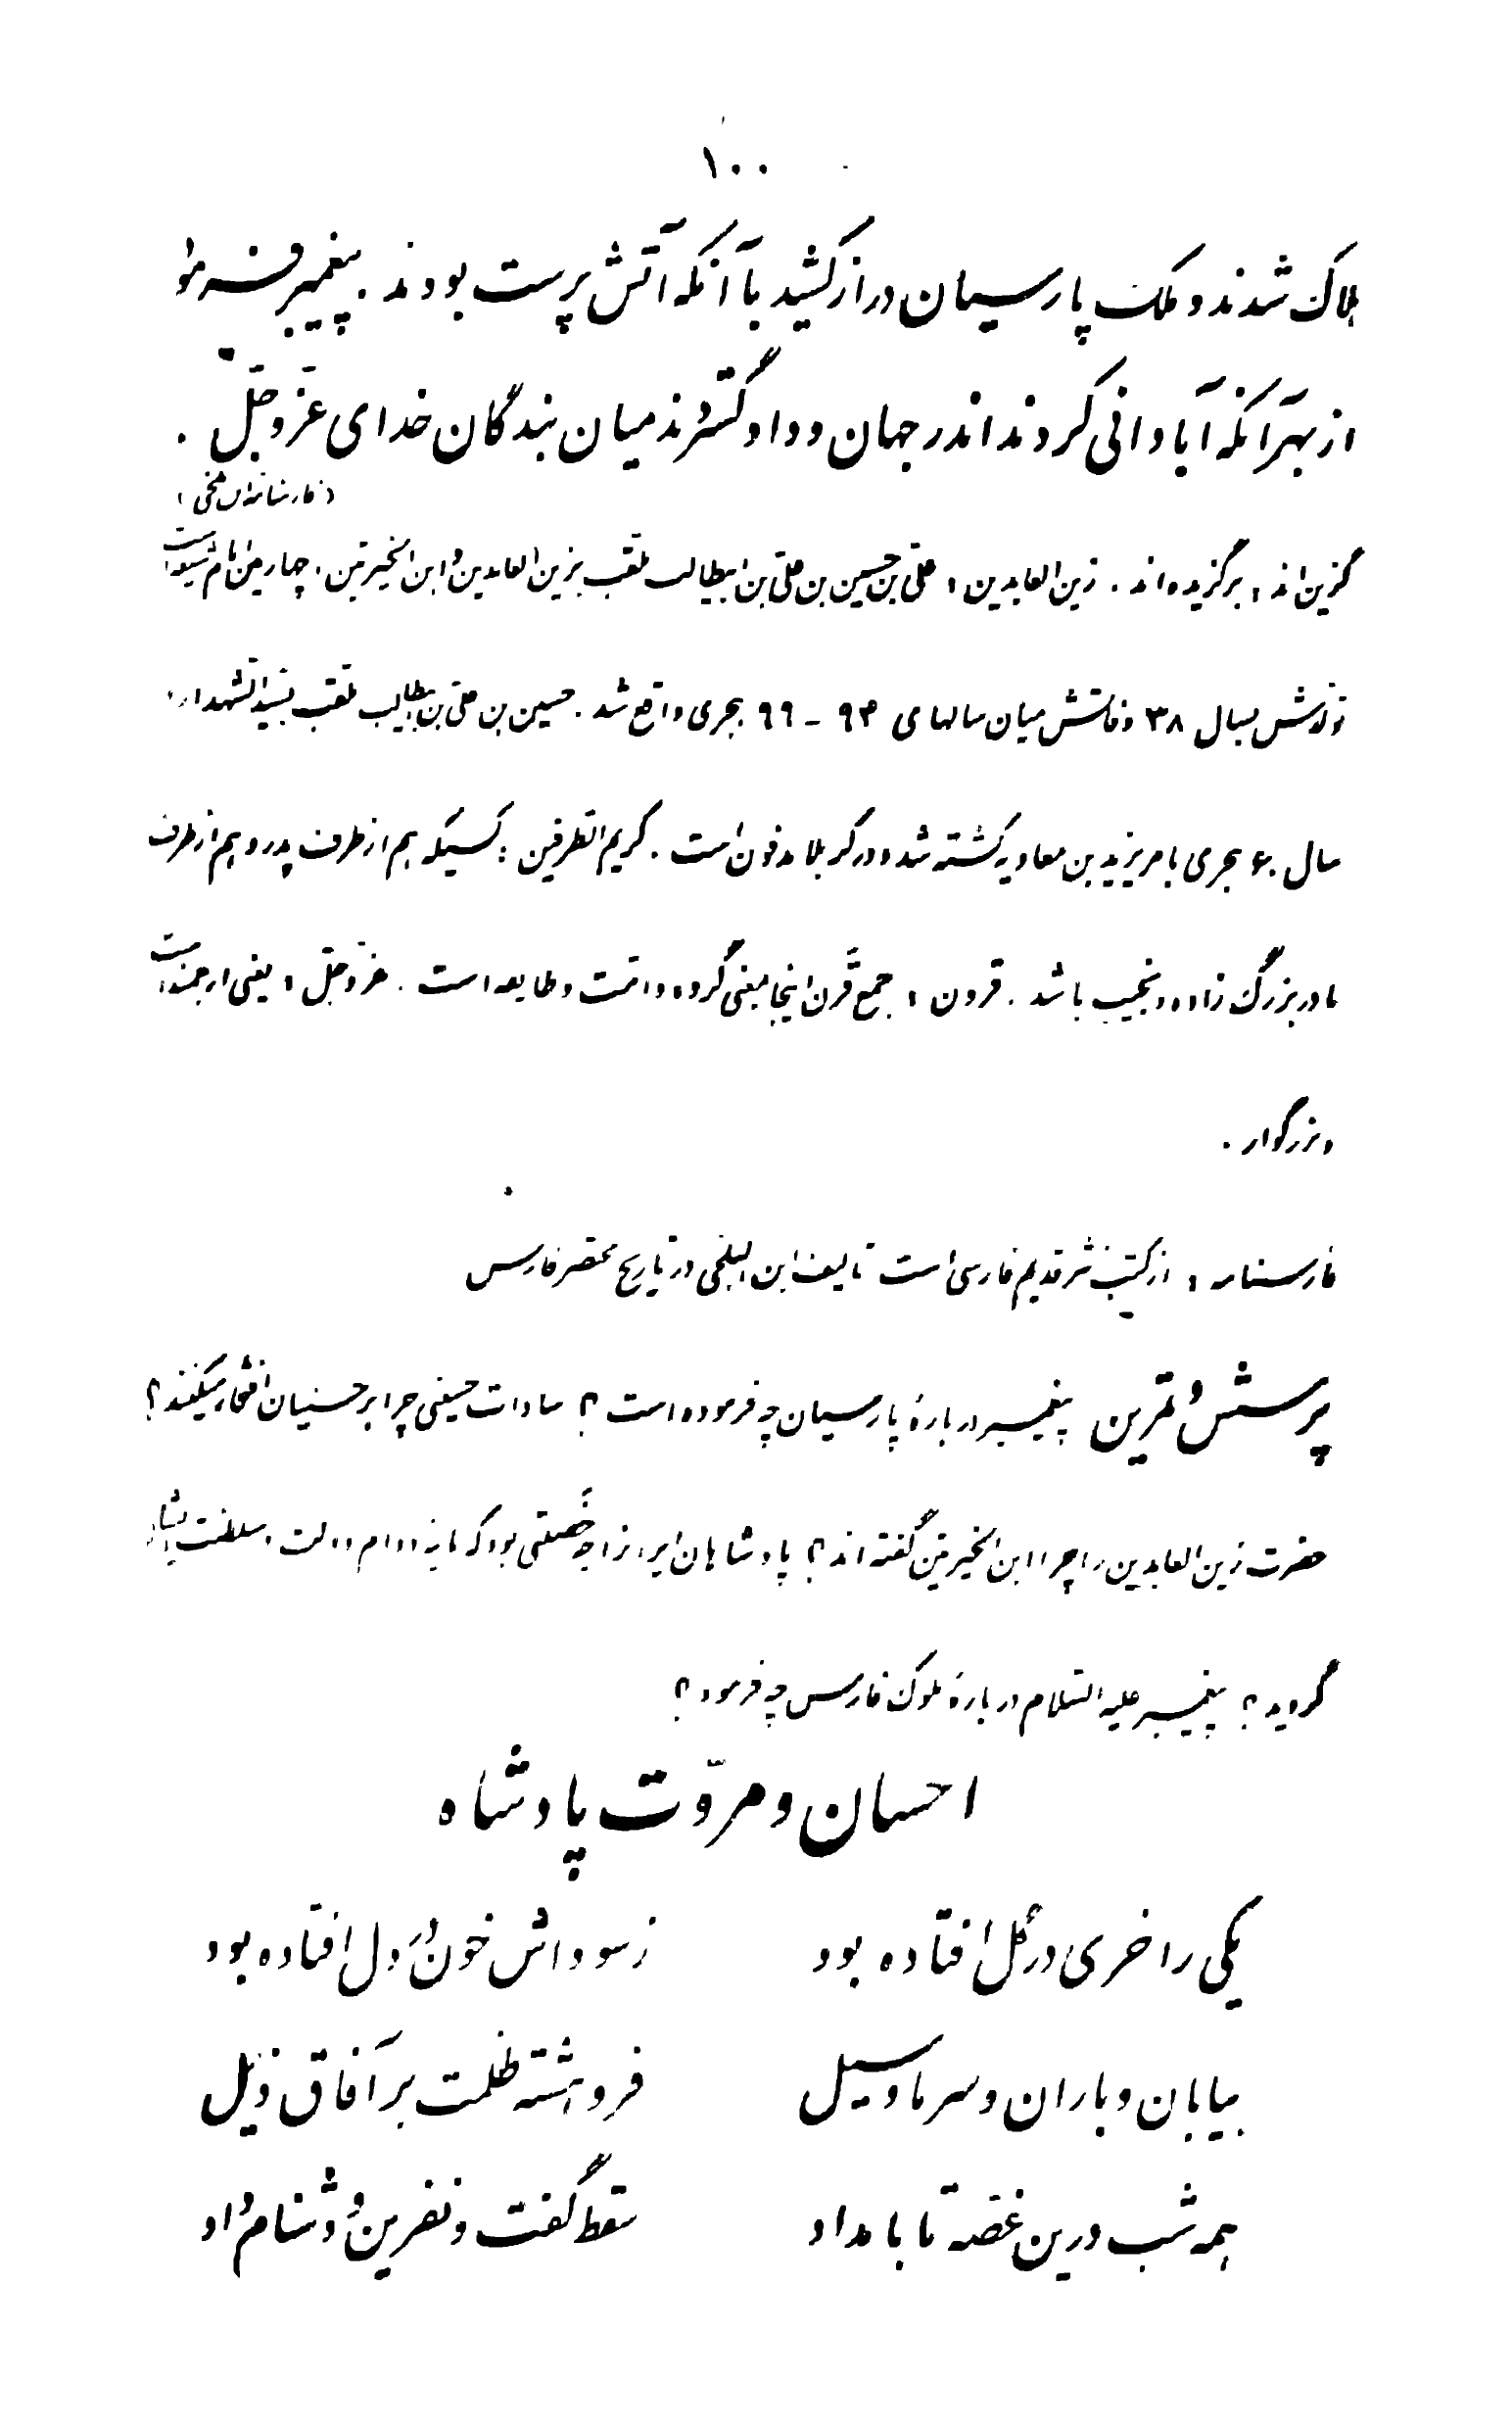 ۱۰۰
هلاک شدند و ملک پارسیان دراز کشید با آنکه آتش پرست بودند. پیغمبر فرمود
از بهر آنکه آبادانی کردند اندر جهان و داد گستردند میان بندگان خدای عزّوجلّ .
(فارسنامه ابن بلخی)
گزین‌اند : برگزیده‌اند . زین العابدین : علیّ بن حسین بن علیّ بن ابیطالب ملقب بزین العابدین و ابن الخیرتین ، چهارمین امام شیعه است
تولدش بسال ۳۸ وفاتش میان سالهای ۹۴ - ۹۹ هجری واقع شد . حسین بن علیّ بن ابیطالب ملقب بسیّد الشهداء ،
سال ۶۰ هجری بامر یزید بن معاویه کشته شد و در کربلا مدفون است . کریم الطرفین : کسیکه هم از طرف پدر و هم از طرف
مادر بزرگ زاده و نجیب باشد . قرون : جمع قَرن اینجا بمعنی گروه و امّت و طایفه است . عزّوجلّ : یعنی ارجمند است
و بزرگوار .
فارسنامه : از کتب نثر قدیم فارسی است تالیف ابن البلخی در تاریخ مختصر فارس
پرسش و تمرین پیغمبر دربارهٔ پارسیان چه فرموده است ؟ سادات حسینی چرا بر حسنیان افتخار میکنند ؟
حضرت زین العابدین را چرا ابن الخیرتین گفته‌اند ؟ پادشاهان ایران را چه خَصلتی بود که مایه دوام دولت و سلطنت ایشان
گردید ؟ پیغمبر علیه السّلام دربارهٔ ملوک فارس چه فرمود ؟
احسان و مروّت پادشاه
یکی را خری در گل افتاده بود زسوداش خون در دل افتاده بود
بیابان و باران و سرما و سیل فروهشته ظلمت بر آفاق ذیل
همه شب درین غصّه تا بامداد سقط گفت و نفرین و دشنام داد